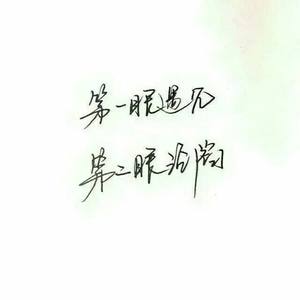 第一眼遇见
第二眼沦陷